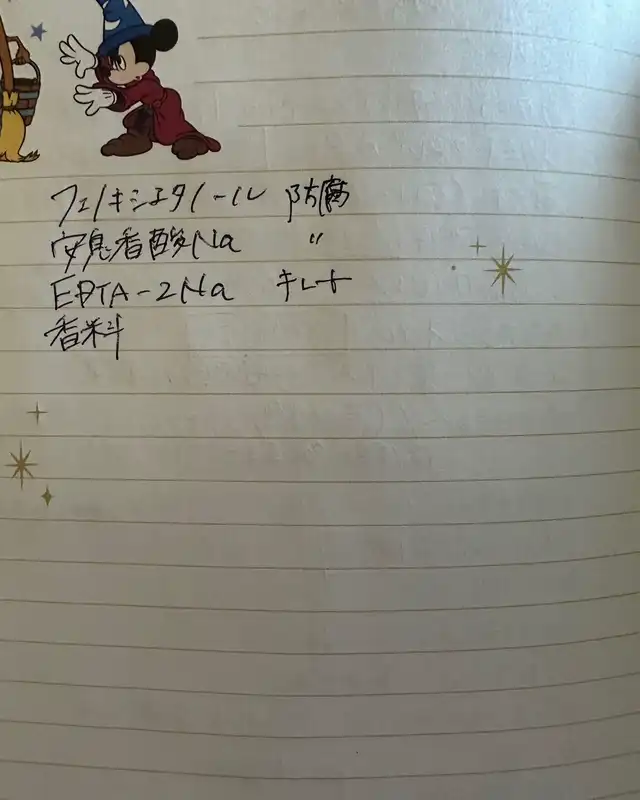 フェノキシエタノール 防腐
安息香酸Na 〃
EDTA-2Na キレート
香料